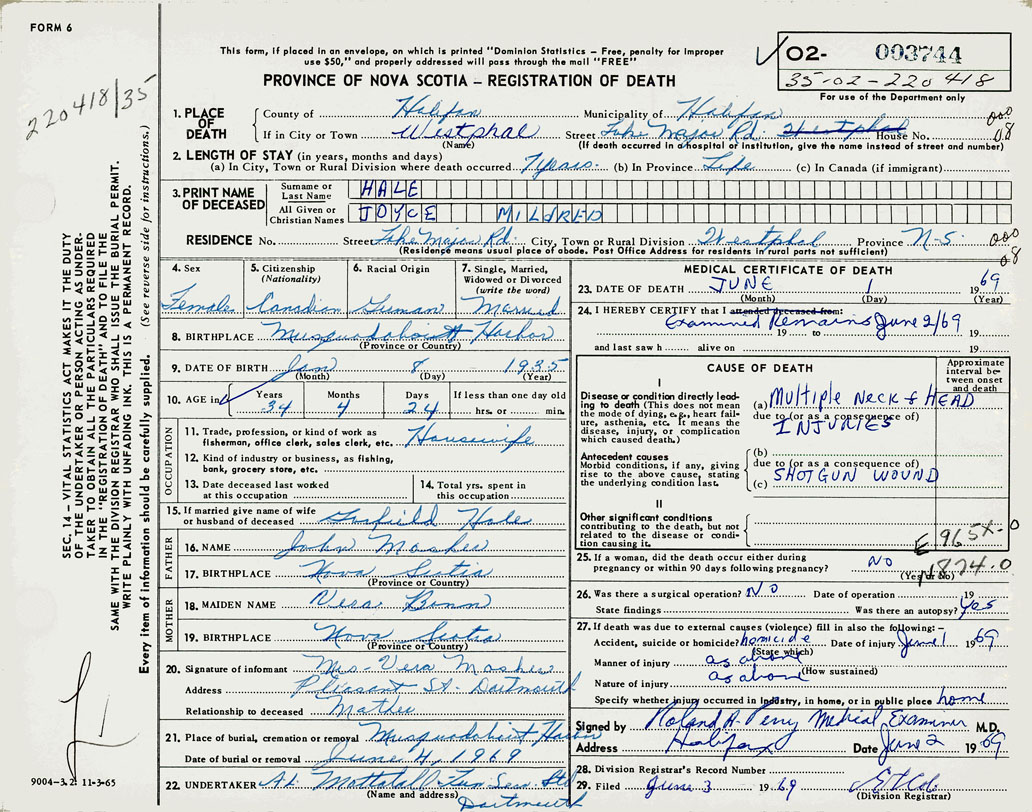 FORM 6
This form, if placed in an envelope, on which is printed "Dominion Statistics – Free, penalty for improper
use $50," and properly addressed will pass through the mail "FREE"
PROVINCE OF NOVA SCOTIA – REGISTRATION OF DEATH
O2- 003744
35-02-220418
For use of the Department only
220418/35
SEC. 14 – VITAL STATISTICS ACT MAKES IT THE DUTY
OF THE UNDERTAKER OR PERSON ACTING AS UNDER-
TAKER TO OBTAIN ALL THE PARTICULARS REQUIRED
IN THE "REGISTRATION OF DEATH" AND TO FILE THE
SAME WITH THE DIVISION REGISTRAR WHO SHALL ISSUE THE BURIAL PERMIT.
WRITE PLAINLY WITH UNFADING INK. THIS IS A PERMANENT RECORD.
Every item of information should be carefully supplied. (See reverse side for instructions.)
1. PLACE OF DEATH County of Halifax Municipality of Halifax 000
If in City or Town Westphal Street Lake Major Rd. Westphal House No. 08
(Name) (If death occurred in a hospital or institution, give the name instead of street and number)
2. LENGTH OF STAY (in years, months and days)
(a) In City, Town or Rural Division where death occurred 7 years (b) In Province Life (c) In Canada (if immigrant)
3. PRINT NAME OF DECEASED Surname or Last Name HALE
All Given or Christian Names JOYCE MILDRED
RESIDENCE No. Street Lake Major Rd. City, Town or Rural Division Westphal Province N-S. 000
(Residence means usual place of abode. Post Office Address for residents in rural parts not sufficient) 08
4. Sex 5. Citizenship (Nationality) 6. Racial Origin 7. Single, Married, Widowed or Divorced (write the word)
Female Canadian German Married
8. BIRTHPLACE Musquodoboit Harbor
(Province or Country)
9. DATE OF BIRTH Jan 8 1935
(Month) (Day) (Year)
10. AGE in Years Months Days If less than one day old
34 4 24 hrs. or min.
OCCUPATION
11. Trade, profession, or kind of work as fisherman, office clerk, sales clerk, etc. Housewife
12. Kind of industry or business, as fishing, bank, grocery store, etc.
13. Date deceased last worked at this occupation 14. Total yrs. spent in this occupation
15. If married give name of wife or husband of deceased Garfield Hale
FATHER
16. NAME John Mosher
17. BIRTHPLACE Nova Scotia
(Province or Country)
MOTHER
18. MAIDEN NAME Vera Bonn
19. BIRTHPLACE Nova Scotia
(Province or Country)
20. Signature of informant Mrs. Vera Mosher
Address Pleasant St. Dartmouth
Relationship to deceased Mother
21. Place of burial, cremation or removal Musquodoboit Harbor
Date of burial or removal June 4, 1969
22. UNDERTAKER
(Name and address) Dartmouth
9004-3.2: 11-3-65
MEDICAL CERTIFICATE OF DEATH
23. DATE OF DEATH JUNE 1 1969
(Month) (Day) (Year)
24. I HEREBY CERTIFY that I attended deceased from:
Examined Remains June 2/69
19 to 19
and last saw h alive on 19
CAUSE OF DEATH Approximate interval between onset and death
I
Disease or condition directly leading to death (This does not mean the mode of dying, e.g., heart failure, asthenia, etc. It means the disease, injury, or complication which caused death.)
(a) Multiple Neck & HEAD
due to (or as a consequence of)
INJURIES
Antecedent causes
Morbid conditions, if any, giving rise to the above cause, stating the underlying condition last.
(b)
due to (or as a consequence of)
(c) SHOTGUN WOUND
II
Other significant conditions contributing to the death, but not related to the disease or condition causing it.
E 965X-0
25. If a woman, did the death occur either during pregnancy or within 90 days following pregnancy? No
(Yes or No) N874.0
26. Was there a surgical operation? No Date of operation 19
State findings Was there an autopsy? Yes
27. If death was due to external causes (violence) fill in also the following: –
Accident, suicide or homicide? homicide Date of injury June 1 1969
(State which)
Manner of injury as above
(How sustained)
Nature of injury as above
Specify whether injury occurred in industry, in home, or in public place home
Signed by Roland A. Perry Medical Examiner M.D.
Address Halifax Date June 2 1969
28. Division Registrar's Record Number
29. Filed June 3 1969
(Division Registrar)